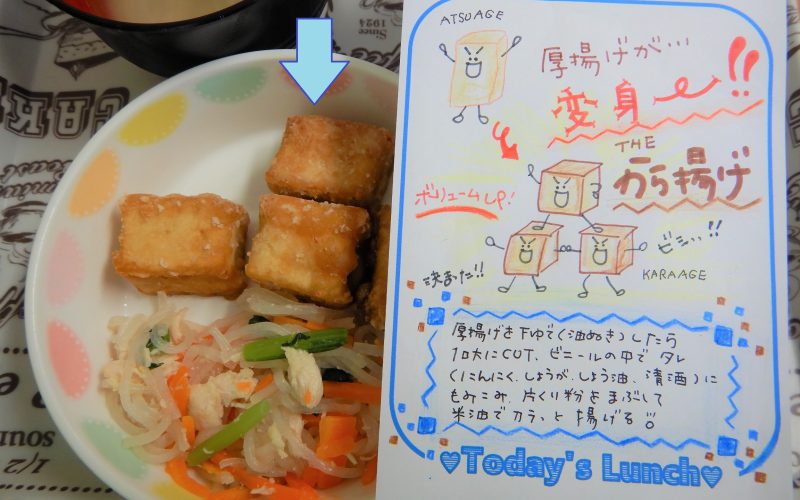 ATSUAGE
厚揚げが…
変身!!
THE
から揚げ
ボリュームUP!
ビシッ…!!
決まった!!
KARAAGE
厚揚げを下ゆで(油ぬき)したら
1口大にCUT、ビニールの中でタレ
(にんにく.しょうが.しょう油、清酒)に
もみこみ、片くり粉をまぶして
米油でカラッと揚げる
Today's Lunch
Since
1924
1/2